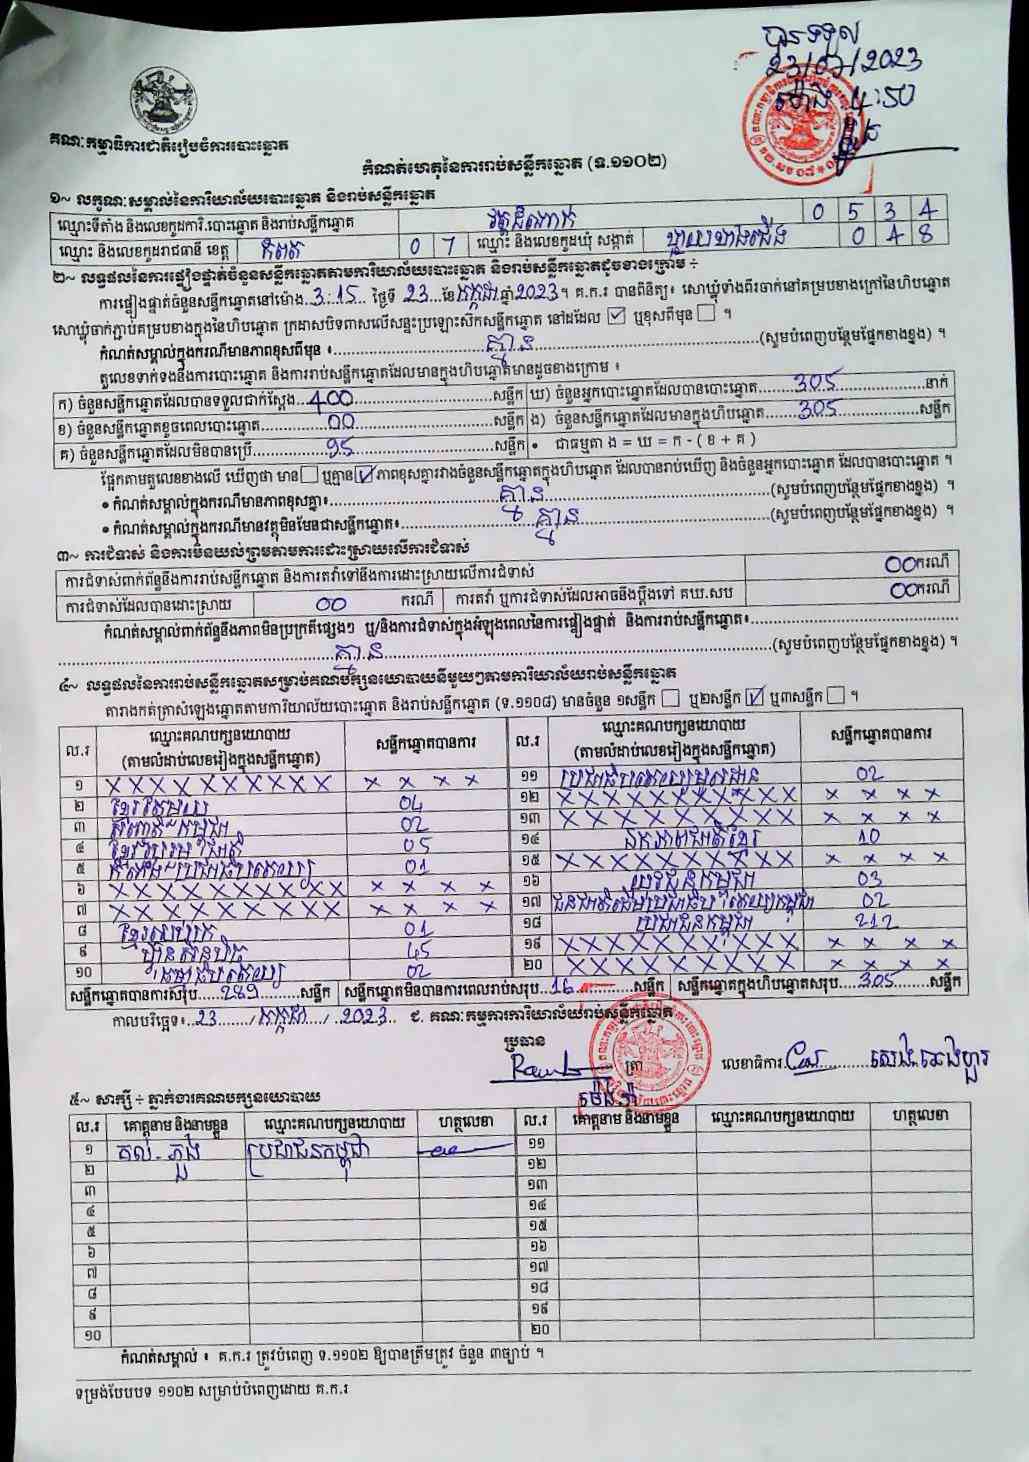 បានទទួល
23/07/2023
ម៉ោង 4:50
គណៈកម្មាធិការជាតិរៀបចំការបោះឆ្នោត
កំណត់ហេតុនៃការរាប់សន្លឹកឆ្នោត (ទ.១១០២)
១~ លក្ខណៈសម្គាល់នៃការិយាល័យបោះឆ្នោត និងរាប់សន្លឹកឆ្នោត
ឈ្មោះទីតាំង និងលេខកូដការិ.បោះឆ្នោត និងរាប់សន្លឹកឆ្នោត 0 5 3 4
ឈ្មោះ និងលេខកូដរាជធានី ខេត្ត កំពត 0 7 ឈ្មោះ និងលេខកូដឃុំ សង្កាត់ ខាងជើង 0 4 8
២~ លទ្ធផលនៃការផ្ទៀងផ្ទាត់ចំនួនសន្លឹកឆ្នោតតាមការិយាល័យបោះឆ្នោត និងរាប់សន្លឹកឆ្នោតដូចខាងក្រោម ÷
ការផ្ទៀងផ្ទាត់ចំនួនសន្លឹកឆ្នោតនៅម៉ោង 3:15 ថ្ងៃទី 23 ខែ កក្កដា ឆ្នាំ 2023។ គ.ក.រ បានពិនិត្យ៖ សោឃ្លុំទាំងពីរចាក់នៅគម្របខាងក្រៅនៃហិបឆ្នោត
សោឃ្លុំចាក់ភ្ជាប់គម្របខាងក្នុងនៃហិបឆ្នោត ក្រដាសបិទពាសលើសន្ទះប្រឡោះស៊កសន្លឹកឆ្នោត នៅដដែល ☑ ឬខុសពីមុន ☐ ។
កំណត់សម្គាល់ក្នុងករណីមានភាពខុសពីមុន ៖ គ្មាន (សូមបំពេញបន្ថែមផ្នែកខាងខ្នង) ។
តួលេខទាក់ទងនឹងការបោះឆ្នោត និងការរាប់សន្លឹកឆ្នោតដែលមានក្នុងហិបឆ្នោតមានដូចខាងក្រោម ៖
ក) ចំនួនសន្លឹកឆ្នោតដែលបានទទួលជាក់ស្តែង 400 សន្លឹក ឃ) ចំនួនអ្នកបោះឆ្នោតដែលបានបោះឆ្នោត 305 នាក់
ខ) ចំនួនសន្លឹកឆ្នោតខូចពេលបោះឆ្នោត 00 សន្លឹក ង) ចំនួនសន្លឹកឆ្នោតដែលមានក្នុងហិបឆ្នោត 305 សន្លឹក
គ) ចំនួនសន្លឹកឆ្នោតដែលមិនបានប្រើ 95 សន្លឹក • ជាធម្មតា ង = ឃ = ក - ( ខ + គ )
ផ្អែកតាមតួលេខខាងលើ ឃើញថា មាន ☐ ឬគ្មាន ☑ ភាពខុសគ្នារវាងចំនួនសន្លឹកឆ្នោតក្នុងហិបឆ្នោត ដែលបានរាប់ឃើញ និងចំនួនអ្នកបោះឆ្នោត ដែលបានបោះឆ្នោត ។
• កំណត់សម្គាល់ក្នុងករណីមានភាពខុសគ្នា៖ គ្មាន (សូមបំពេញបន្ថែមផ្នែកខាងខ្នង) ។
• កំណត់សម្គាល់ក្នុងករណីមានវត្ថុមិនមែនជាសន្លឹកឆ្នោត៖ គ្មាន (សូមបំពេញបន្ថែមផ្នែកខាងខ្នង) ។
៣~ ការជំទាស់ និងការមិនយល់ព្រមតាមការដោះស្រាយលើការជំទាស់
ការជំទាស់ពាក់ព័ន្ធនឹងការរាប់សន្លឹកឆ្នោត និងការតវ៉ាទៅនឹងការដោះស្រាយលើការជំទាស់ 00 ករណី
ការជំទាស់ដែលបានដោះស្រាយ 00 ករណី ការតវ៉ា ឬការជំទាស់ដែលអាចនឹងប្តឹងទៅ គឃ.សប 00 ករណី
កំណត់សម្គាល់ពាក់ព័ន្ធនឹងភាពមិនប្រក្រតីផ្សេងៗ ឬ/និងការជំទាស់ក្នុងអំឡុងពេលនៃការផ្ទៀងផ្ទាត់ និងការរាប់សន្លឹកឆ្នោត៖
គ្មាន (សូមបំពេញបន្ថែមផ្នែកខាងខ្នង) ។
៤~ លទ្ធផលនៃការរាប់សន្លឹកឆ្នោតសម្រាប់គណបក្សនយោបាយនីមួយៗតាមការិយាល័យរាប់សន្លឹកឆ្នោត
តារាងកត់ត្រាសំឡេងឆ្នោតតាមការិយាល័យបោះឆ្នោត និងរាប់សន្លឹកឆ្នោត (ទ.១១០៨) មានចំនួន ១សន្លឹក ☐ ឬ២សន្លឹក ☑ ឬ៣សន្លឹក ☐ ។
ល.រ ឈ្មោះគណបក្សនយោបាយ (តាមលំដាប់លេខរៀងក្នុងសន្លឹកឆ្នោត) សន្លឹកឆ្នោតបានការ ល.រ ឈ្មោះគណបក្សនយោបាយ (តាមលំដាប់លេខរៀងក្នុងសន្លឹកឆ្នោត) សន្លឹកឆ្នោតបានការ
១ X X X X X X X X X X X X X X ១១ ប្រជាធិបតេយ្យមូលដ្ឋាន 02
២ ខ្មែរតែមួយ 04 ១២ X X X X X X X X X X X X X X
៣ 02 ១៣ X X X X X X X X X X X X X X
៤ ខ្មែររួបរួមជាតិ 05 ១៤ ឯកភាពជាតិខ្មែរ 10
៥ កំលាំងប្រជាធិបតេយ្យ 01 ១៥ X X X X X X X X X X X X X X
៦ X X X X X X X X X X X X X X ១៦ យុវជនកម្ពុជា 03
៧ X X X X X X X X X X X X X X ១៧ ជនជាតិដើមប្រជាធិបតេយ្យកម្ពុជា 02
៨ ខ្មែរ 01 ១៨ ប្រជាជនកម្ពុជា 212
៩ ហ៊្វុនស៊ិនប៉ិច 45 ១៩ X X X X X X X X X X X X X X
១០ 02 ២០ X X X X X X X X X X X X X X
សន្លឹកឆ្នោតបានការសរុប 289 សន្លឹក សន្លឹកឆ្នោតមិនបានការពេលរាប់សរុប 16 សន្លឹក សន្លឹកឆ្នោតក្នុងហិបឆ្នោតសរុប 305 សន្លឹក
កាលបរិច្ឆេទ៖ 23 / កក្កដា / 2023 ជ. គណៈកម្មការការិយាល័យរាប់សន្លឹកឆ្នោត
ប្រធាន
ត្រា លេខាធិការ
៥~ សាក្សី ÷ ភ្នាក់ងារគណបក្សនយោបាយ
ល.រ គោត្តនាម និងនាមខ្លួន ឈ្មោះគណបក្សនយោបាយ ហត្ថលេខា ល.រ គោត្តនាម និងនាមខ្លួន ឈ្មោះគណបក្សនយោបាយ ហត្ថលេខា
១ គល់ ភួង ប្រជាជនកម្ពុជា ១១
២ ១២
៣ ១៣
៤ ១៤
៥ ១៥
៦ ១៦
៧ ១៧
៨ ១៨
៩ ១៩
១០ ២០
កំណត់សម្គាល់ ៖ គ.ក.រ ត្រូវបំពេញ ទ.១១០២ ឱ្យបានត្រឹមត្រូវ ចំនួន ៣ច្បាប់ ។
ទម្រង់បែបបទ ១១០២ សម្រាប់បំពេញដោយ គ.ក.រ